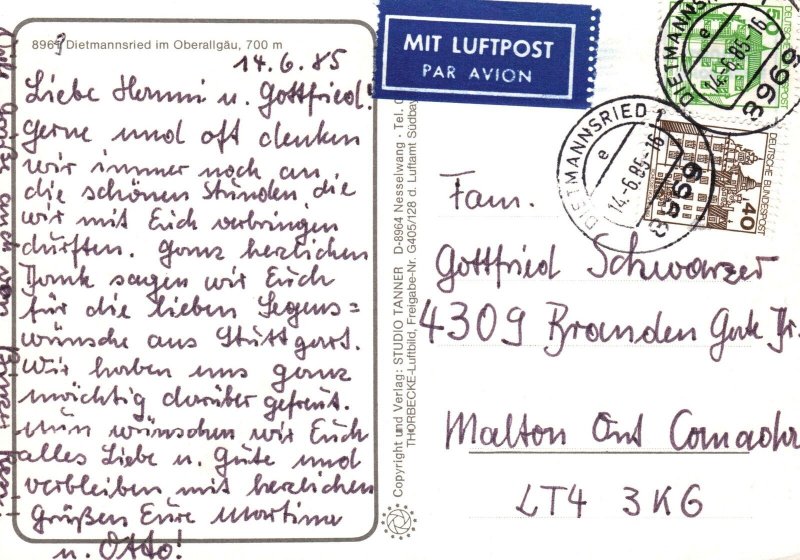 8969 Dietmannsried im Oberallgäu, 700 m
14.6.85
Liebe Hanni u. Gottfried!
Gerne und oft denken
wir immer noch an
die schönen Stunden, die
wir mit Euch verbringen
durften. Ganz herzlichen
Dank sagen wir Euch
für die lieben Segens=
wünsche aus Stuttgart.
Wir haben uns ganz
mächtig darüber gefreut.
Nun wünschen wir Euch
alles Liebe u. Gute und
verbleiben mit herzlichen
Grüßen Eure Martina
u. Otto!
Copyright und Verlag: STUDIO TANNER D-8964 Nesselwang · Tel.
THORBECKE-Luftbild, Freigabe-Nr. G405/128 d. Luftamt Südbay
MIT LUFTPOST
PAR AVION
DIETMANNSRIED 1
e
14.-6.85-16
8969
50
DEUTSCHE BUNDESPOST
DIETMANNSRIED 1
e
14.-6.85-16
8969
40
DEUTSCHE BUNDESPOST
Fam.
Gottfried Schwarzer
4309 Branden Gate Tr.
Malton Ont Canada
LT4 3KG